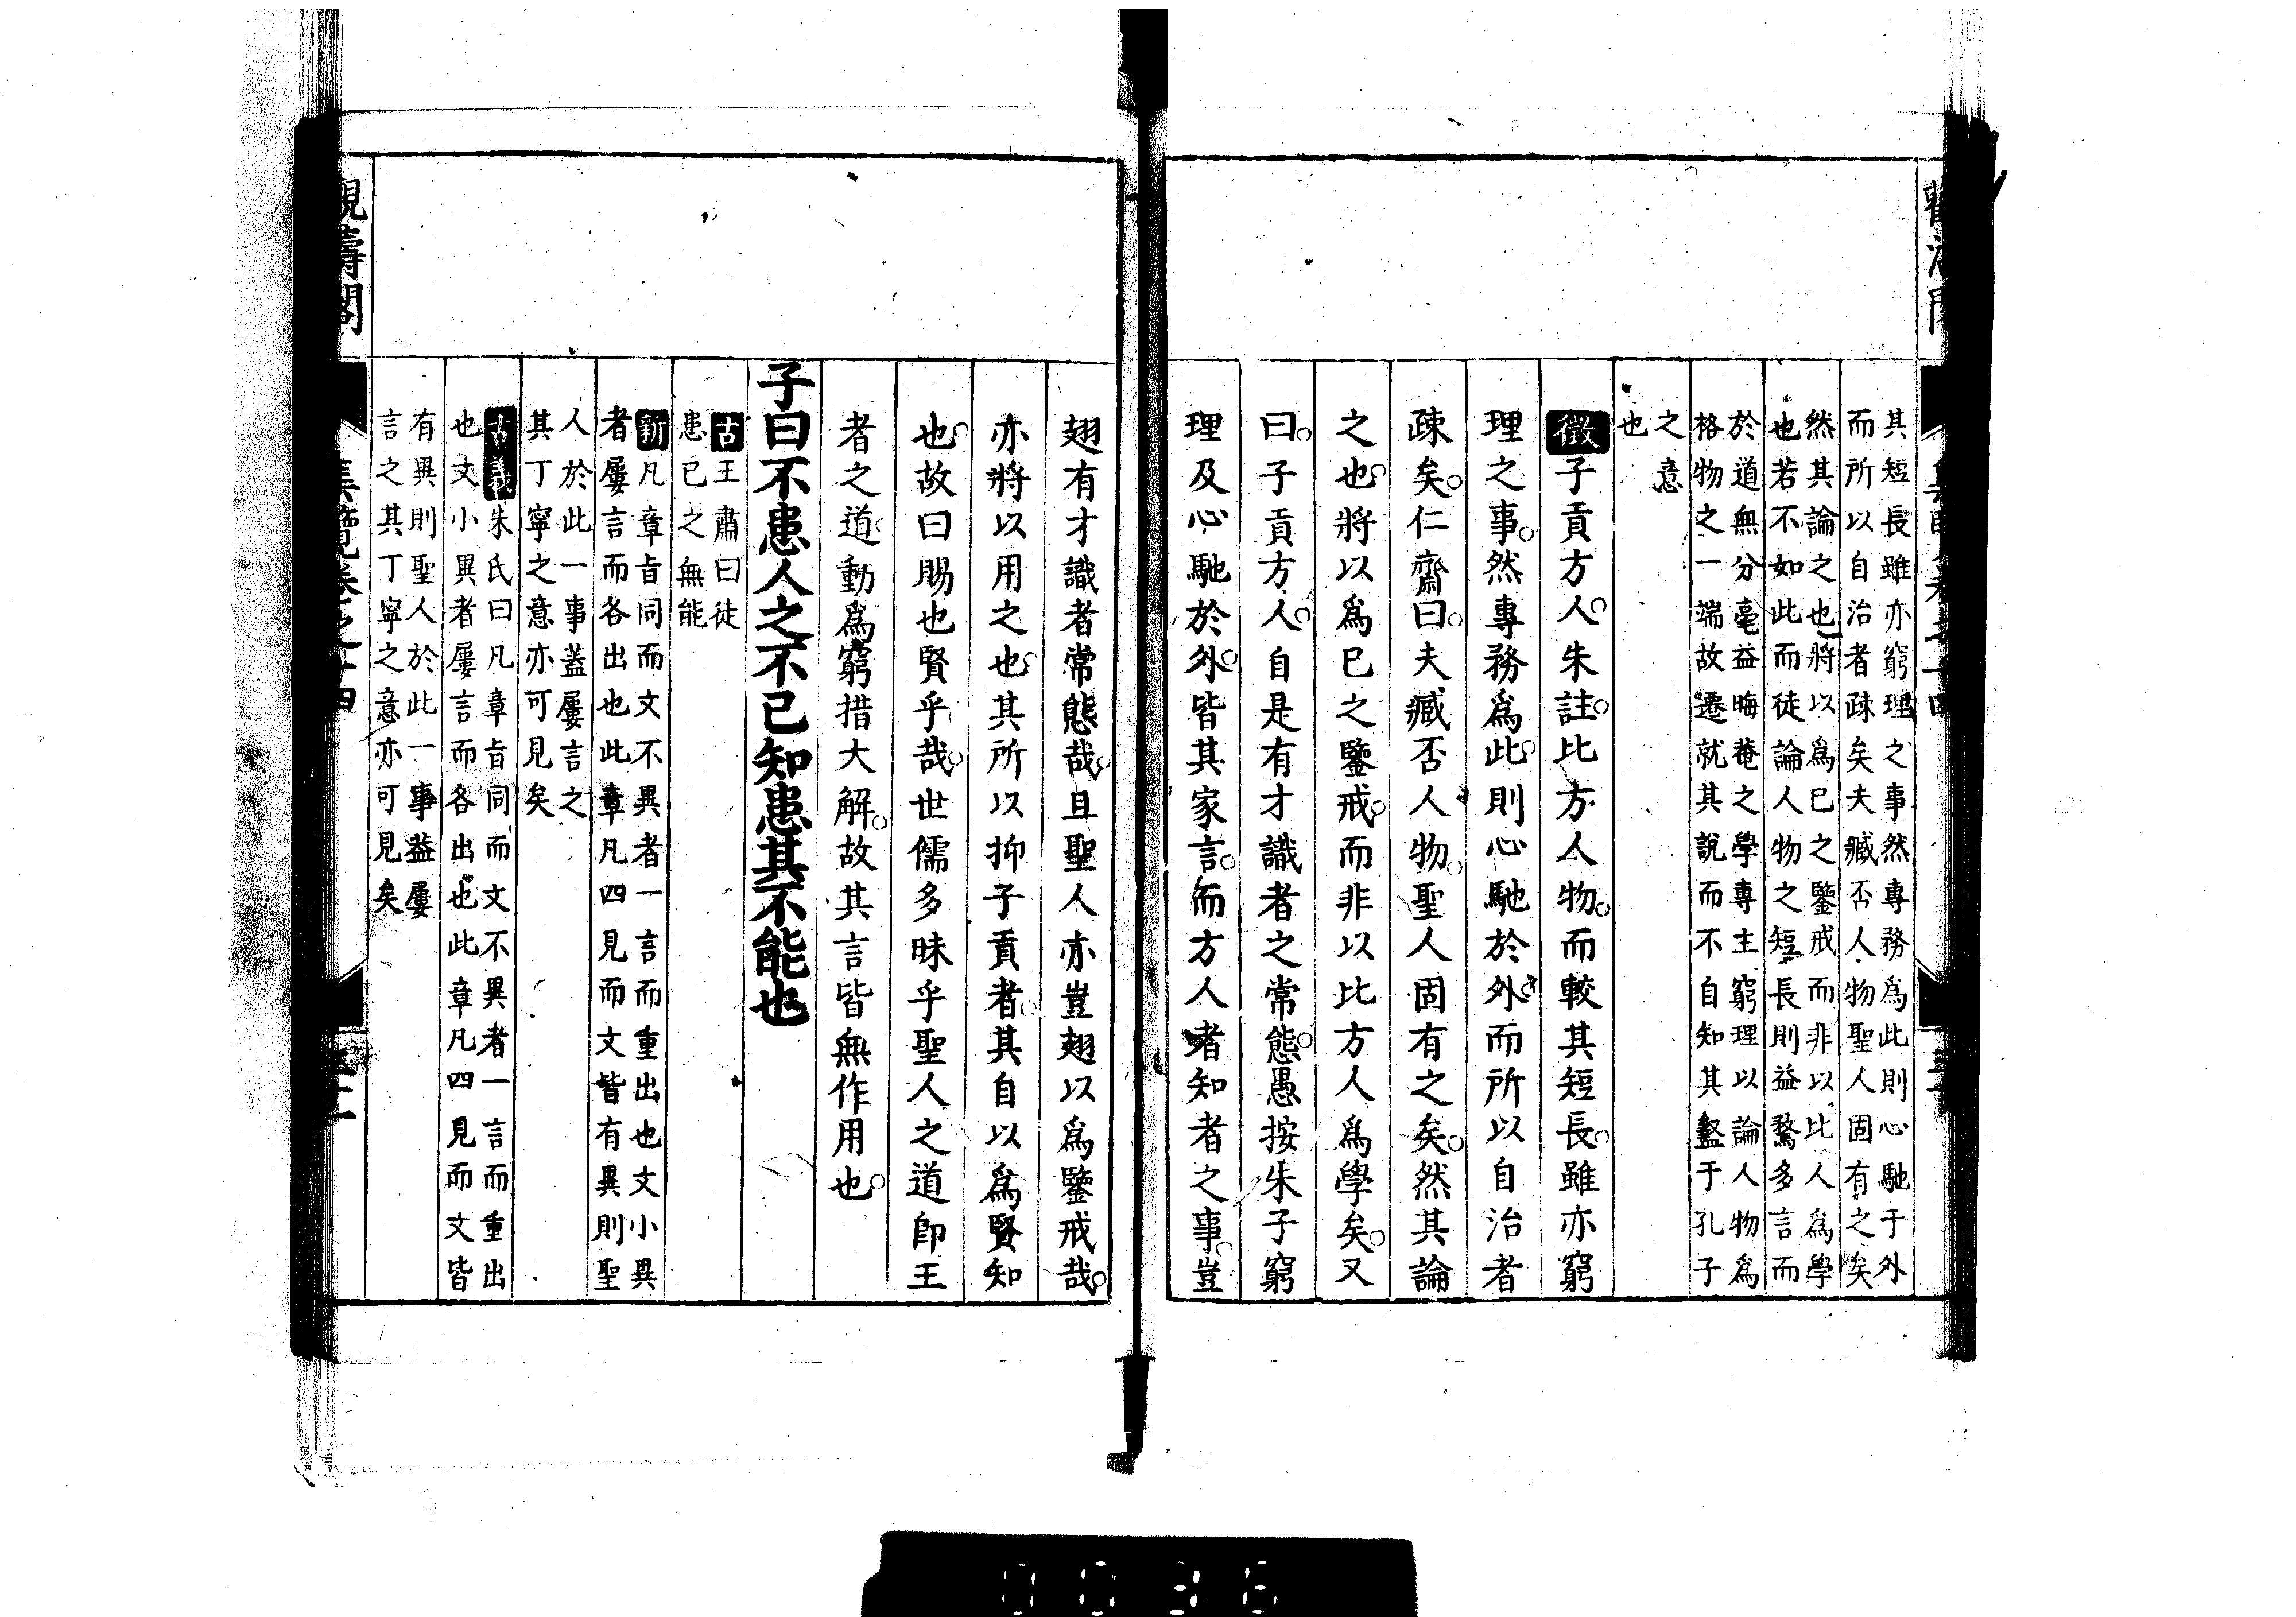 其短長雖亦窮理之事然專務爲此則心馳于外
而所以自治者疎矣夫臧否人物聖人固有之矣
然其論之也將以爲己之鑒戒而非以比人爲學
也若不如此而徒論人物之短長則益騖多言而
於道無分毫益晦菴之學專主窮理以論人物爲
格物之一端故遷就其說而不自知其盭于孔子
之意
也
徵子貢方人朱註比方人物而較其短長雖亦窮
理之事然專務爲此則心馳於外而所以自治者
疎矣仁齋曰夫臧否人物聖人固有之矣然其論
之也將以爲己之鑒戒而非以比方人爲學矣又
曰子貢方人自是有才識者之常態愚按朱子窮
理及心馳於外皆其家言而方人者知者之事豈
翅有才識者常態哉且聖人亦豈翅以爲鑒戒哉
亦將以用之也其所以抑子貢者其自以爲賢知
也故曰賜也賢乎哉世儒多昧乎聖人之道卽王
者之道動爲窮措大解故其言皆無作用也
子曰不患人之不己知患其不能也
古王肅曰徒
患己之無能
新凡章旨同而文不異者一言而重出也文小異
者屢言而各出也此章凡四見而文皆有異則聖
人於此一事蓋屢言之
其丁寧之意亦可見矣
古義朱氏曰凡章旨同而文不異者一言而重出
也文小異者屢言而各出也此章凡四見而文皆
有異則聖人於此一事益屢
言之其丁寧之意亦可見矣
觀濤閣
集覽卷之十四
0036